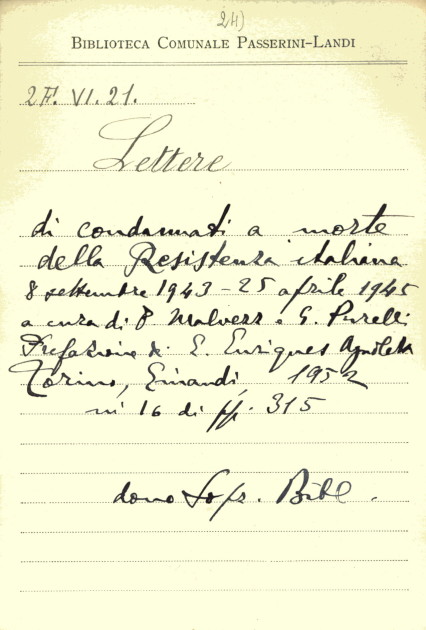 24)
BIBLIOTECA COMUNALE PASSERINI-LANDI
2F. VI. 21.
Lettere
di condannati a morte
della Resistenza italiana
8 settembre 1943 - 25 aprile 1945
a cura di P. Malvezzi e G. Pirelli
Prefazione di E. Enriques Agnoletti
Torino, Einaudi, 1952
in 16 di pp. 315
dono Bibl.